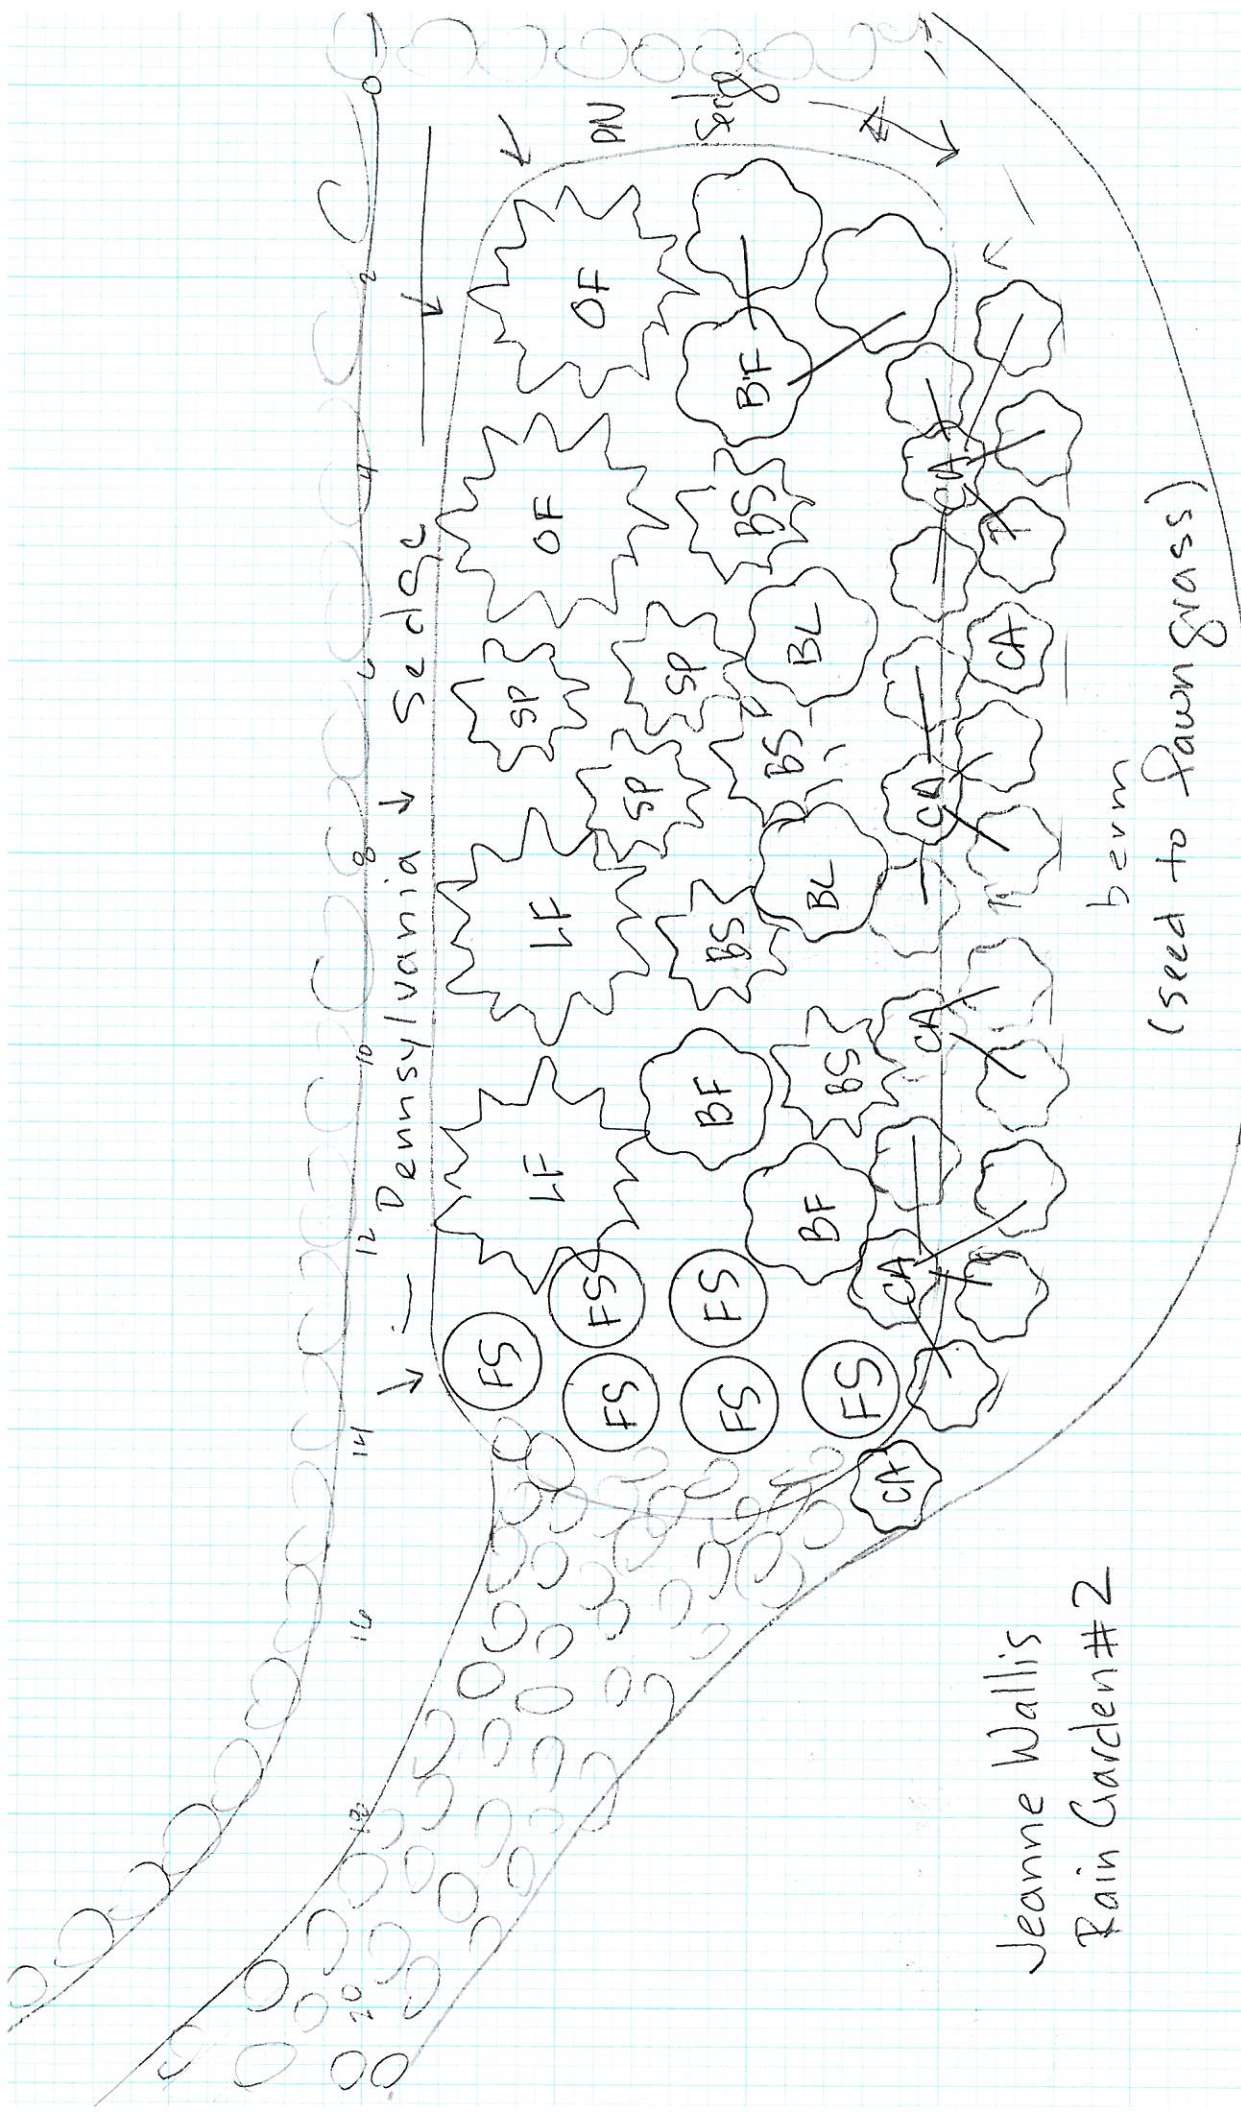 Jeanne Wallis
Rain Garden #2
20
18
16
14
12
10
8
6
4
2
0
Pennsylvania Sedge
FS
FS
FS
FS
FS
FS
LF
LF
OF
OF
SP
SP
SP
BF
BF
BF
BS
BS
BS
BS
BL
BL
CA
CA
CA
CA
CA
CA
7
berm
(seed to fawngrass)